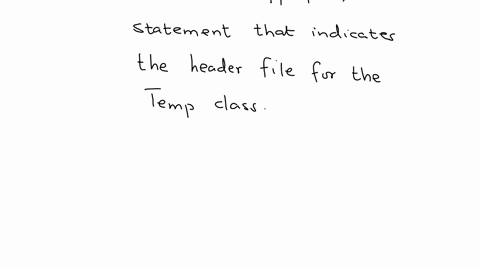 statement that indicates
the header file for the
Temp class.